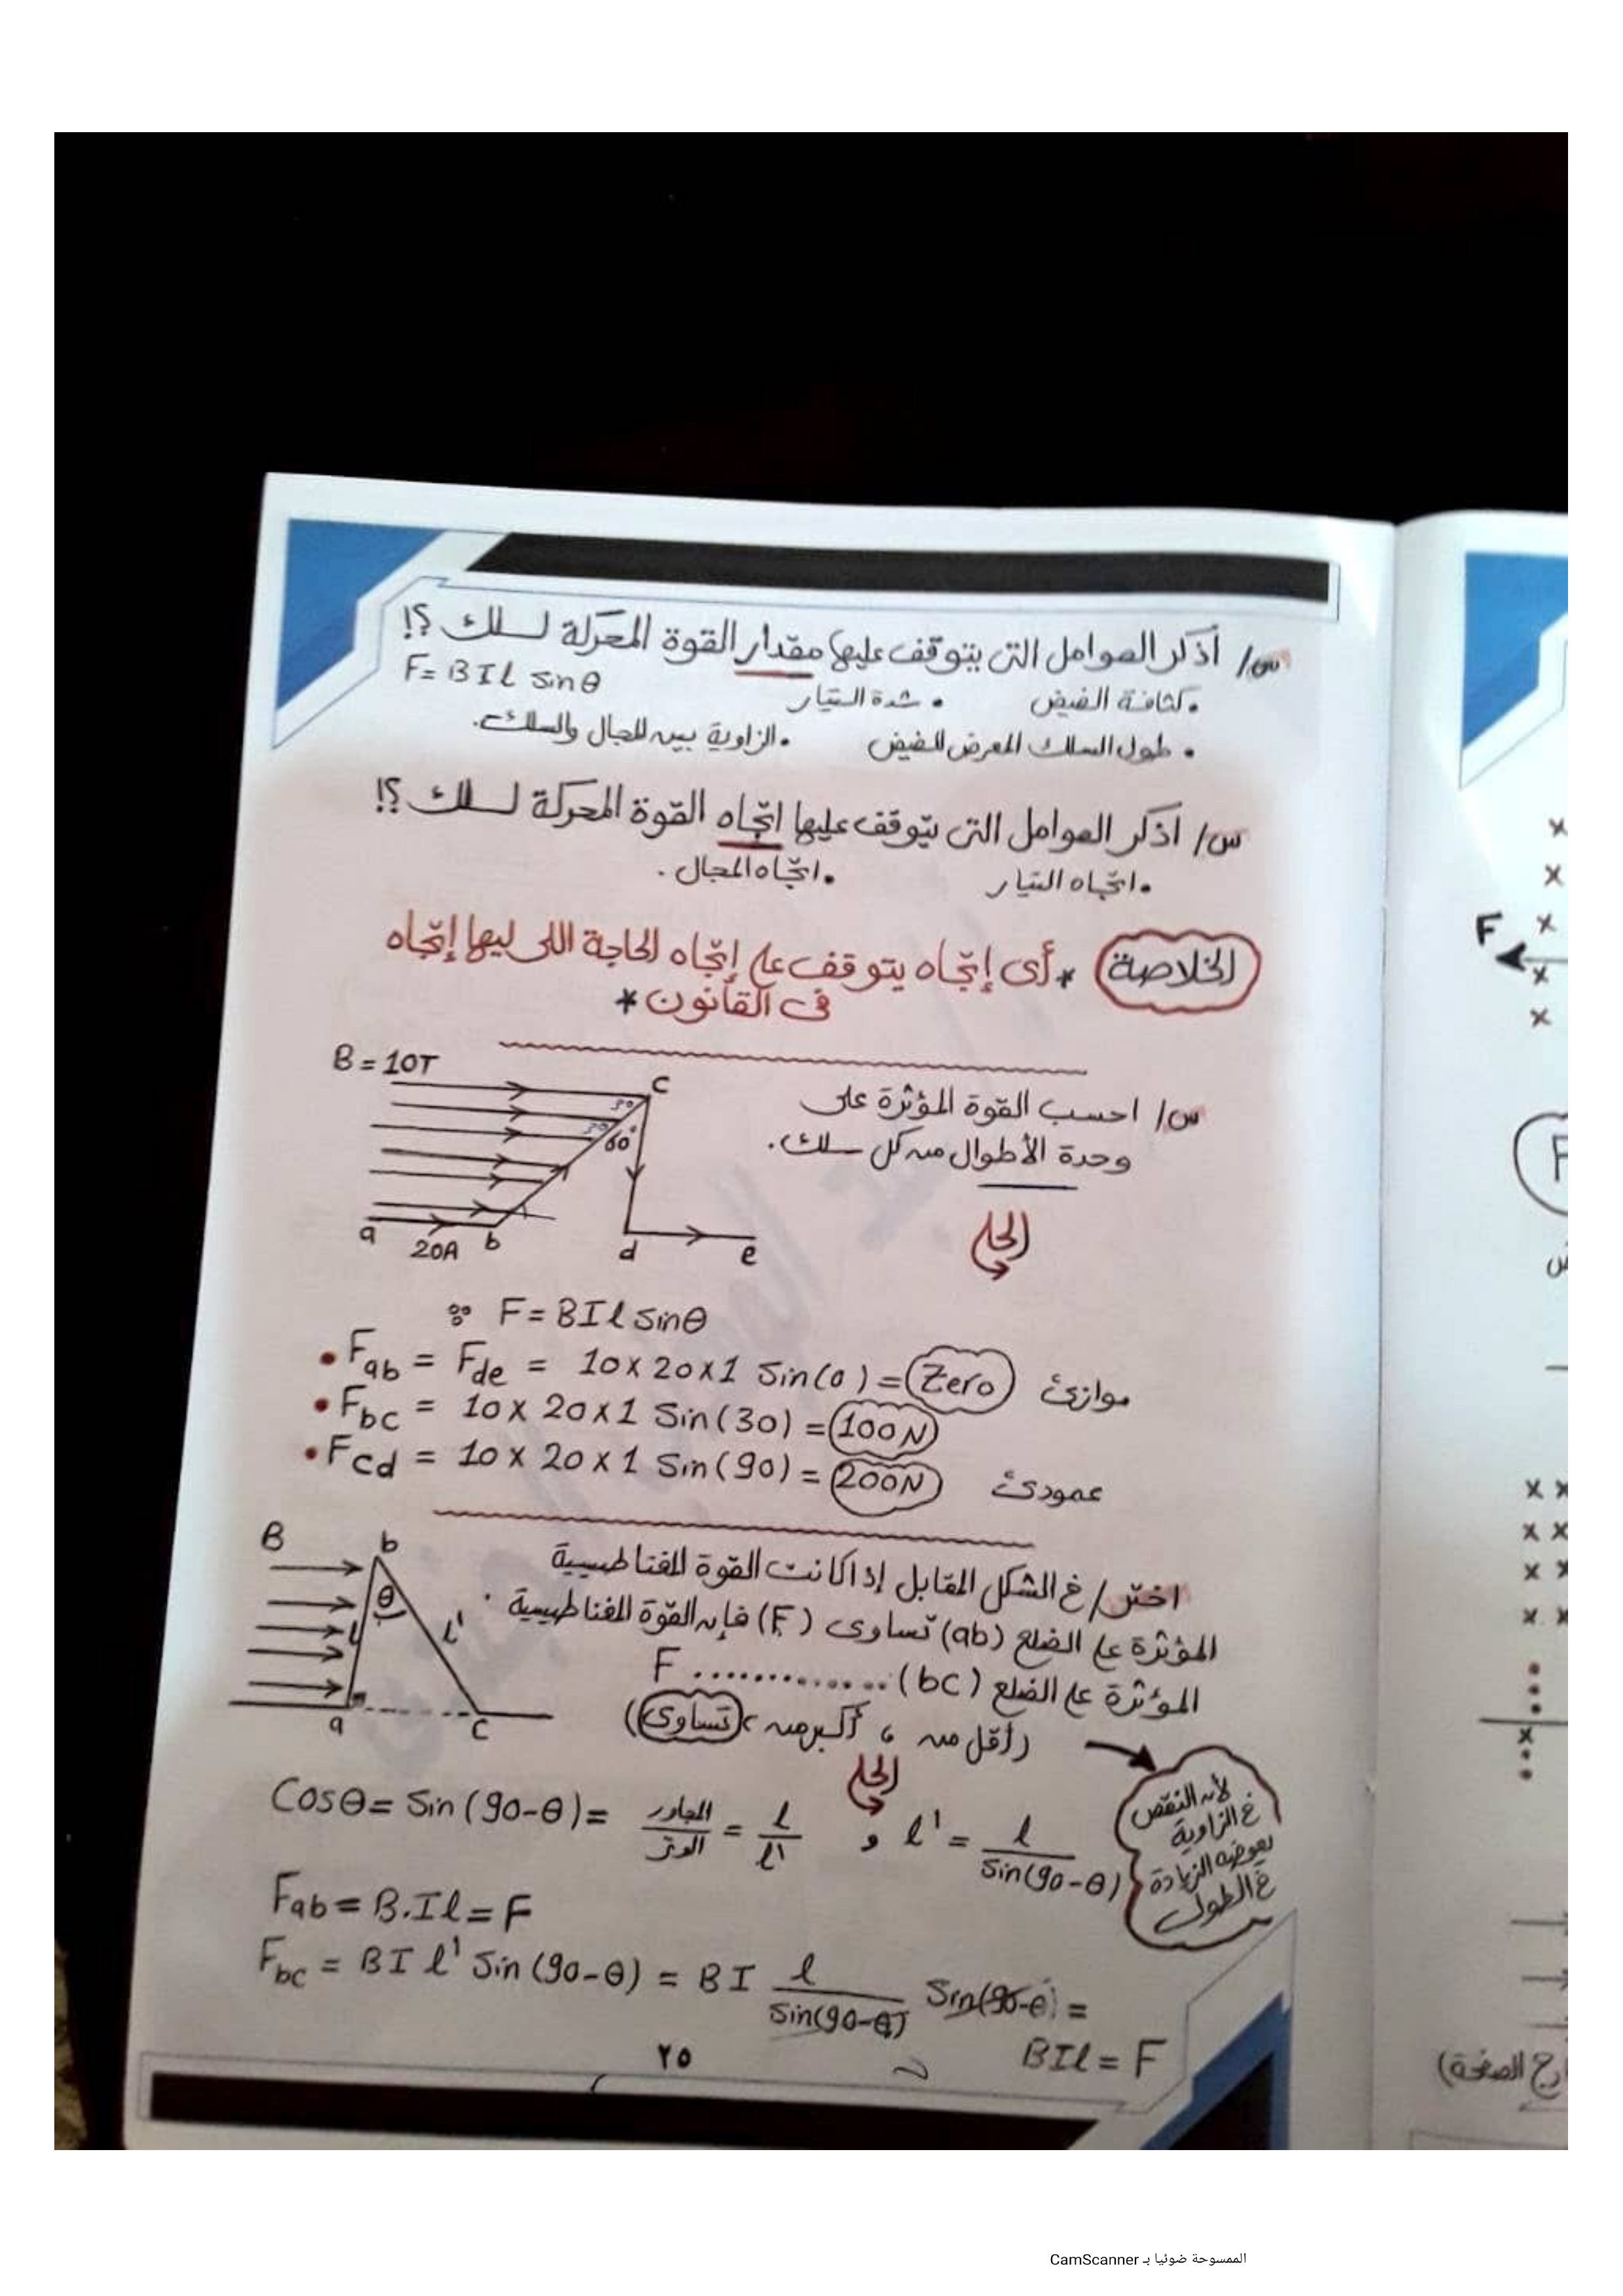 س/ أذكر العوامل التى يتوقف عليها مقدار القوة المحركة لسلك ؟!
F= BIl sinθ
• كثافة الفيض • شدة التيار
• طول السلك المعرض للفيض • الزاوية بين المجال والسلك.
س/ اذكر العوامل التى يتوقف عليها اتجاه القوة المحركة لسلك ؟!
• اتجاه التيار • اتجاه المجال.
الخلاصة * أى إتجاه يتوقف على إتجاه الحاجة اللى ليها إتجاه
فى القانون *
B = 10T
س/ احسب القوة المؤثرة على
وحدة الأطوال من كل سلك.
c
30
30
60°
a 20A b d e
الحل
∵ F = BIl sinθ
• Fab = Fde = 10 x 20 x 1 Sin(0) = Zero موازى
• Fbc = 10 x 20 x 1 Sin(30) = 100N
• Fcd = 10 x 20 x 1 Sin(90) = 200N عمودى
B b
θ
l l'
a c
اختر/ فى الشكل المقابل إذا كانت القوة المغناطيسية
المؤثرة على الضلع (ab) تساوى (F) فإن القوة المغناطيسية
المؤثرة على الضلع (bc) .............. F
(أقل من ، أكبر من ، تساوى)
الحل
لأن النقص
فى الزاوية
يعوضه الزيادة
فى الطول
Cosθ = Sin(90-θ) = المجاور/الوتر = l/l' و l' = l/Sin(90-θ)
Fab = B.Il = F
Fbc = BI l' Sin(90-θ) = BI l/Sin(90-θ) Sin(90-θ) =
BIl = F
٢٥
x
x
F x
x
x
F
x x
x x
x x
x x
x
ارج الصفحة)
الممسوحة ضوئيا بـ CamScanner